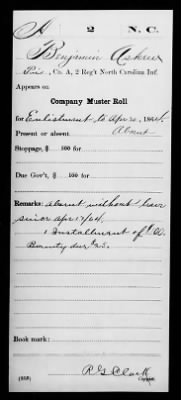 A 2 N. C.
Benjamin Askew
Pvt, Co. A, 2 Reg't North Carolina Inf.
Appears on
Company Muster Roll
for Enlistment to Apr 30, 1864.
Present or absent Absent
Stoppage, $ 100 for
Due Gov't, $ 100 for
Remarks: absent without leave
since Apr 17/64.
1 Installment of $
Bounty due $25.
Book mark:
R G Clark
Copyist.